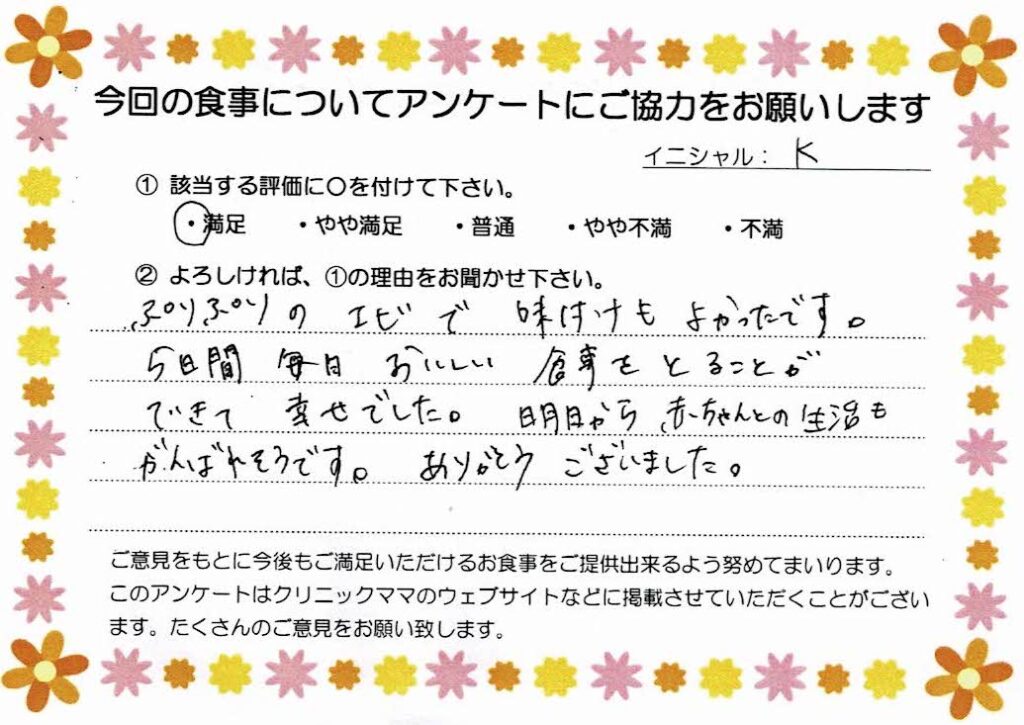 今回の食事についてアンケートにご協力をお願いします
イニシャル： K
① 該当する評価に〇を付けて下さい。
・満足 ・やや満足 ・普通 ・やや不満 ・不満
② よろしければ、①の理由をお聞かせ下さい。
ぷりぷりの エビで 味付けも よかったです。
5日間 毎日 おいしい 食事を とることが
できて 幸せでした。 明日から 赤ちゃんとの生活も
がんばれそうです。 ありがとう ございました。
ご意見をもとに今後もご満足いただけるお食事をご提供出来るよう努めてまいります。
このアンケートはクリニックママのウェブサイトなどに掲載させていただくことがござい
ます。たくさんのご意見をお願い致します。